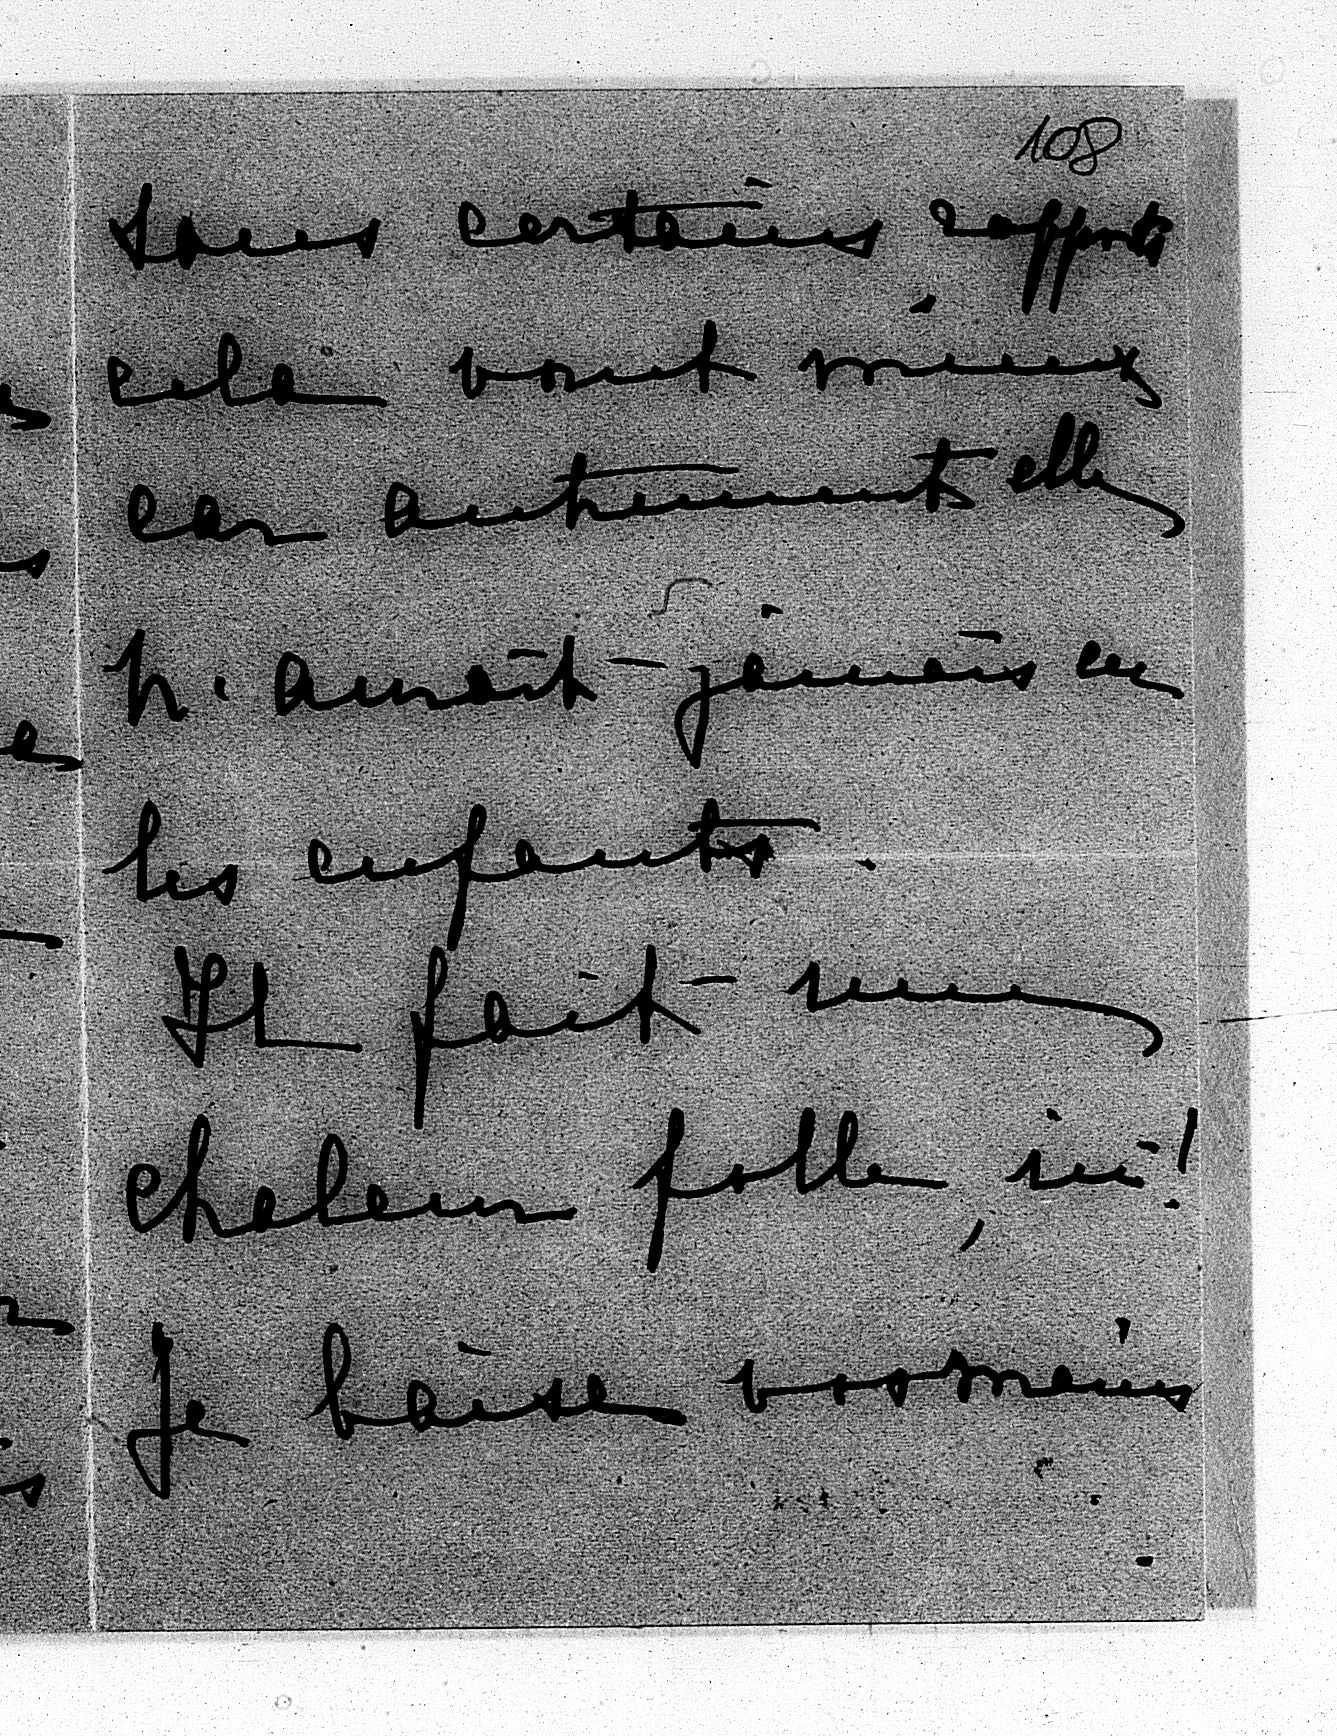 108
sous certains rapports
cela vaut mieux
car autrement elle
n'aurait jamais eu
les enfants.
Il fait une
chaleur folle, ici!
Je baise vos mains